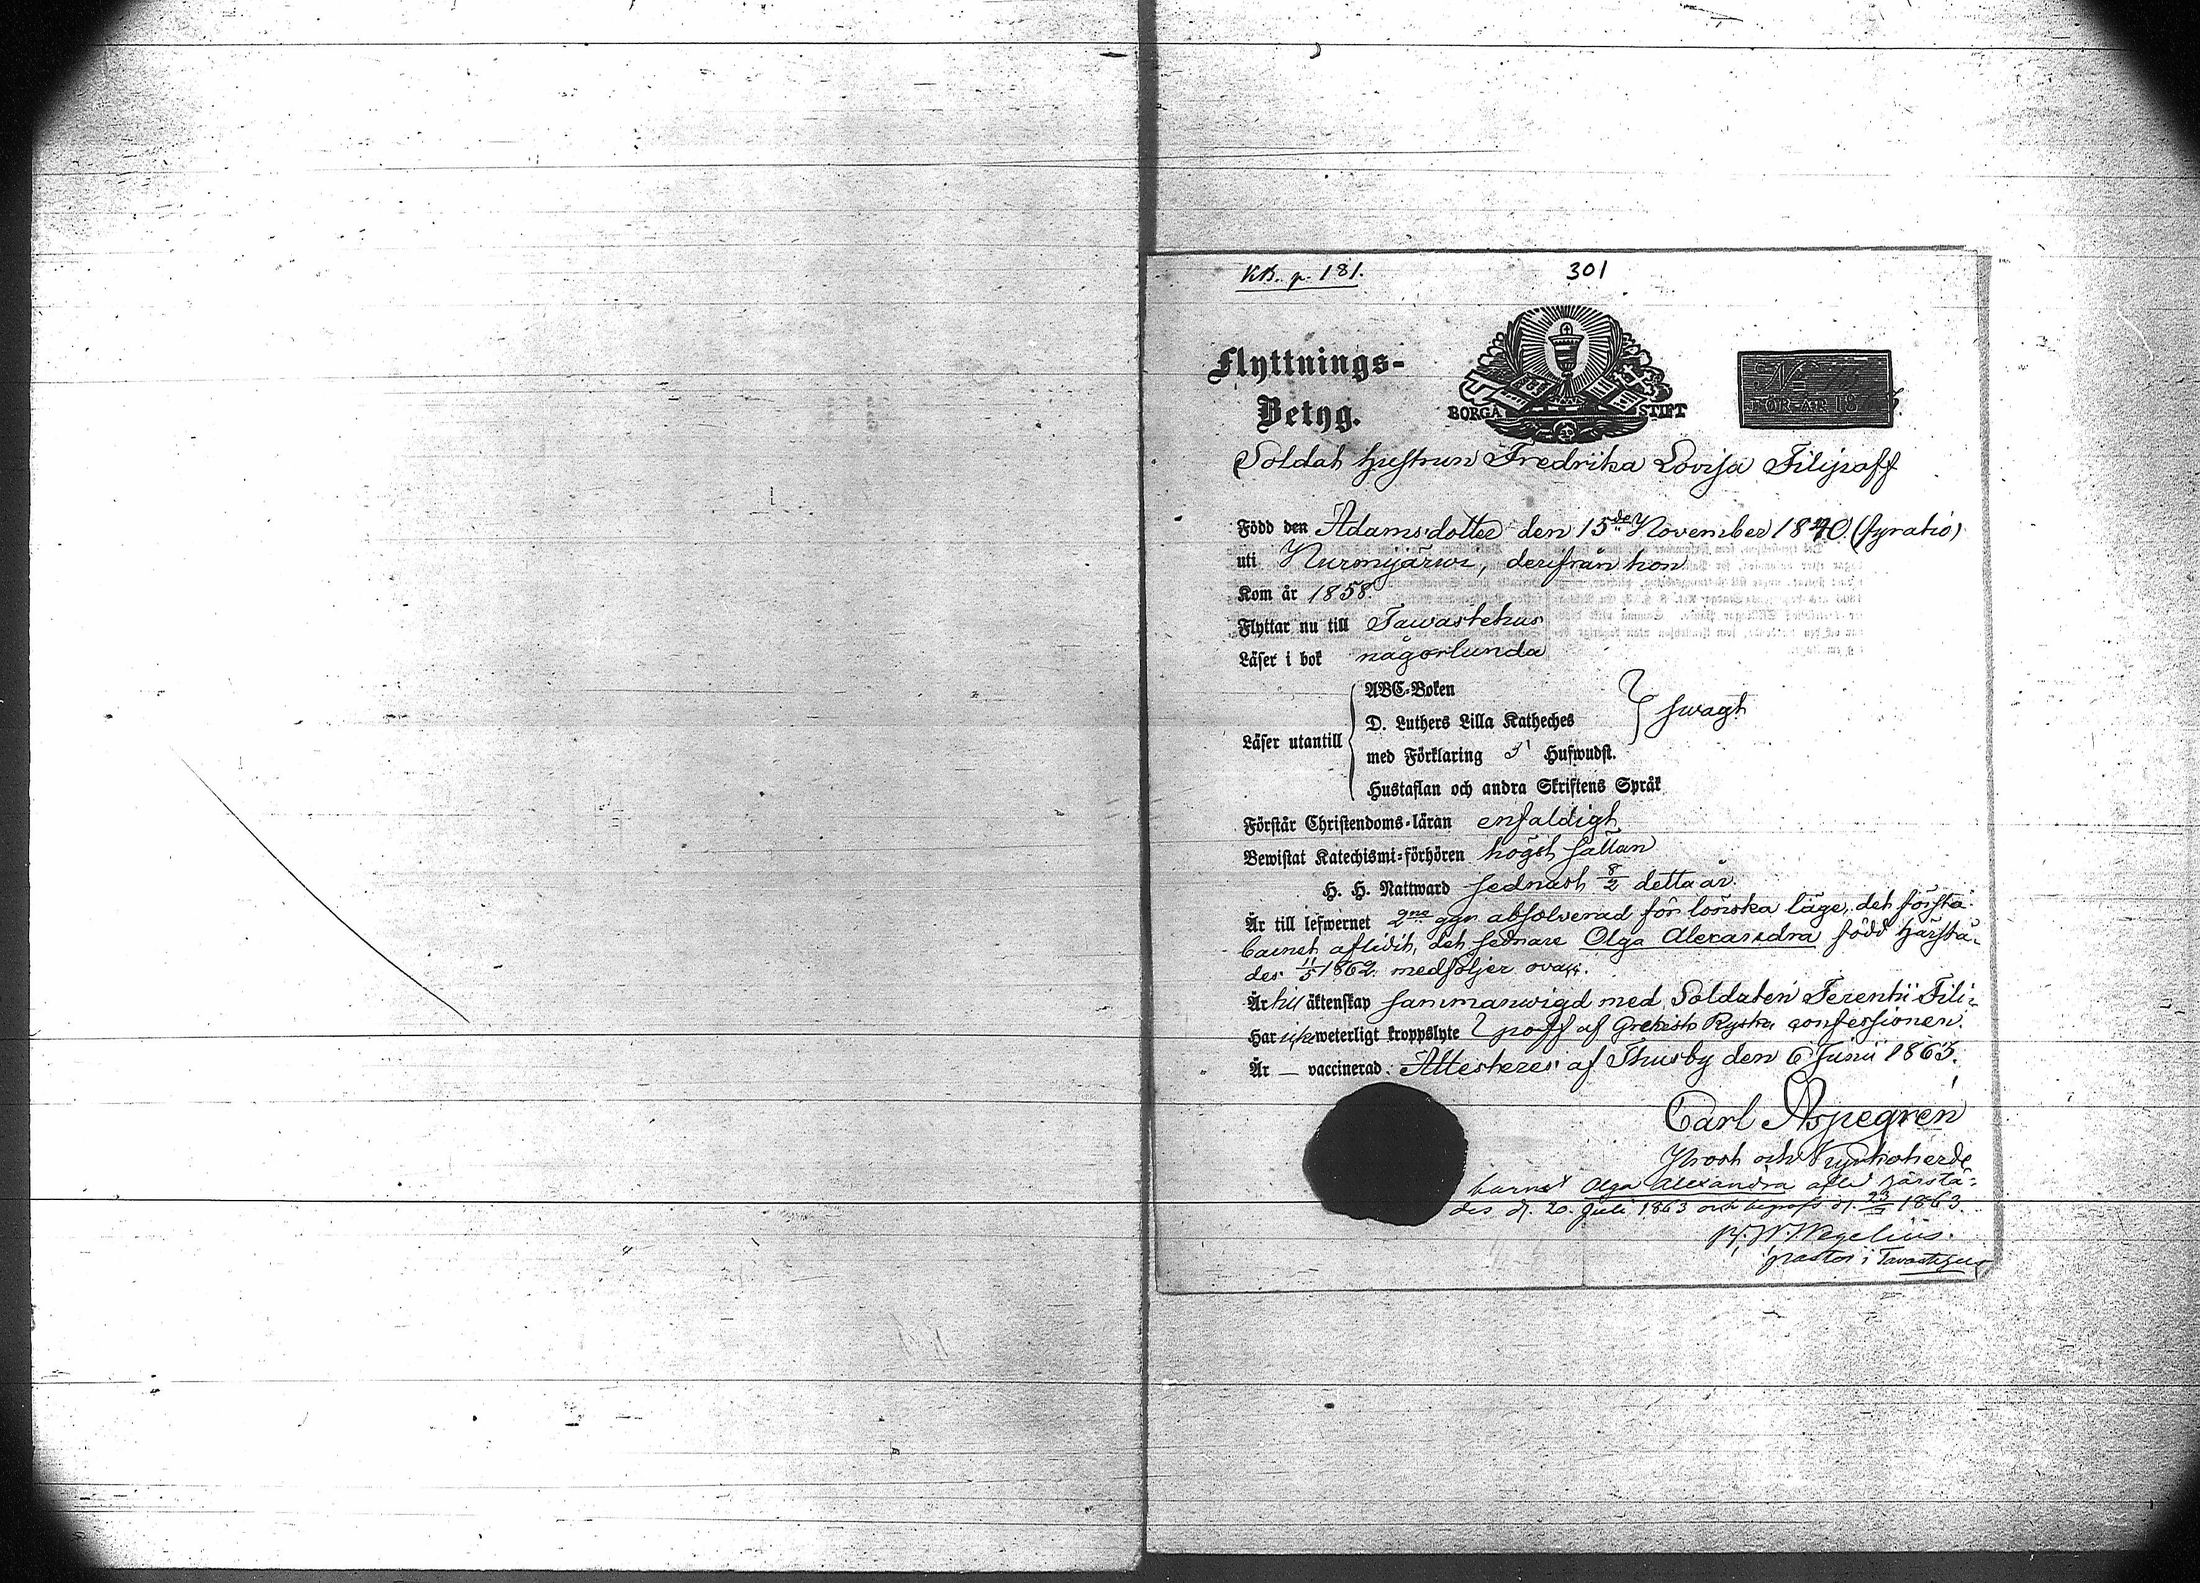 KB. p. 181.
301
Flyttnings-
Betyg.
BORGÅ STIFT
No
FÖR ÅR 18
Soldat hustrun Fredrika Lovisa Filipoff
Född den Adamsdotter den 15de November 1840. (fyratio)
uti Nurmijärwi, derifrån hon
Kom år 1858.
Flyttar nu till Tawastehus
Läser i bok någorlunda
ABC-Boken
D. Luthers Lilla Katheches
Läser utantill
swagt
med Förklaring 3 Hufwudst.
Hustaflan och andra Skriftens Språk
Förstår Christendoms-läran enfaldigt
Bewistat Katechismi-förhören högst sällan
H. H. Nattward sednast 8/2 detta år.
Är till lefwernet 2ne ggr absolverad för lönska läge, det första
barnet aflidit, det sednare Olga Alexandra född härstä-
des 11/5 1862. medföljer
Är till äktenskap sammanwigd med Soldaten Terenti Fili-
Har icke weterligt kroppslyte poff af Grekisk Ryska confessionen.
Är — vaccinerad. Attesteres af Thusby den 6 Junii 1863.
Carl Aspegrén
Prost och Kyrkoherde
barnet Olga Alexandra afled härstä-
des d. 20. Juli 1863 och begrofs d. 23 1863.
W. Wegelius.
pastor i Tavastehus